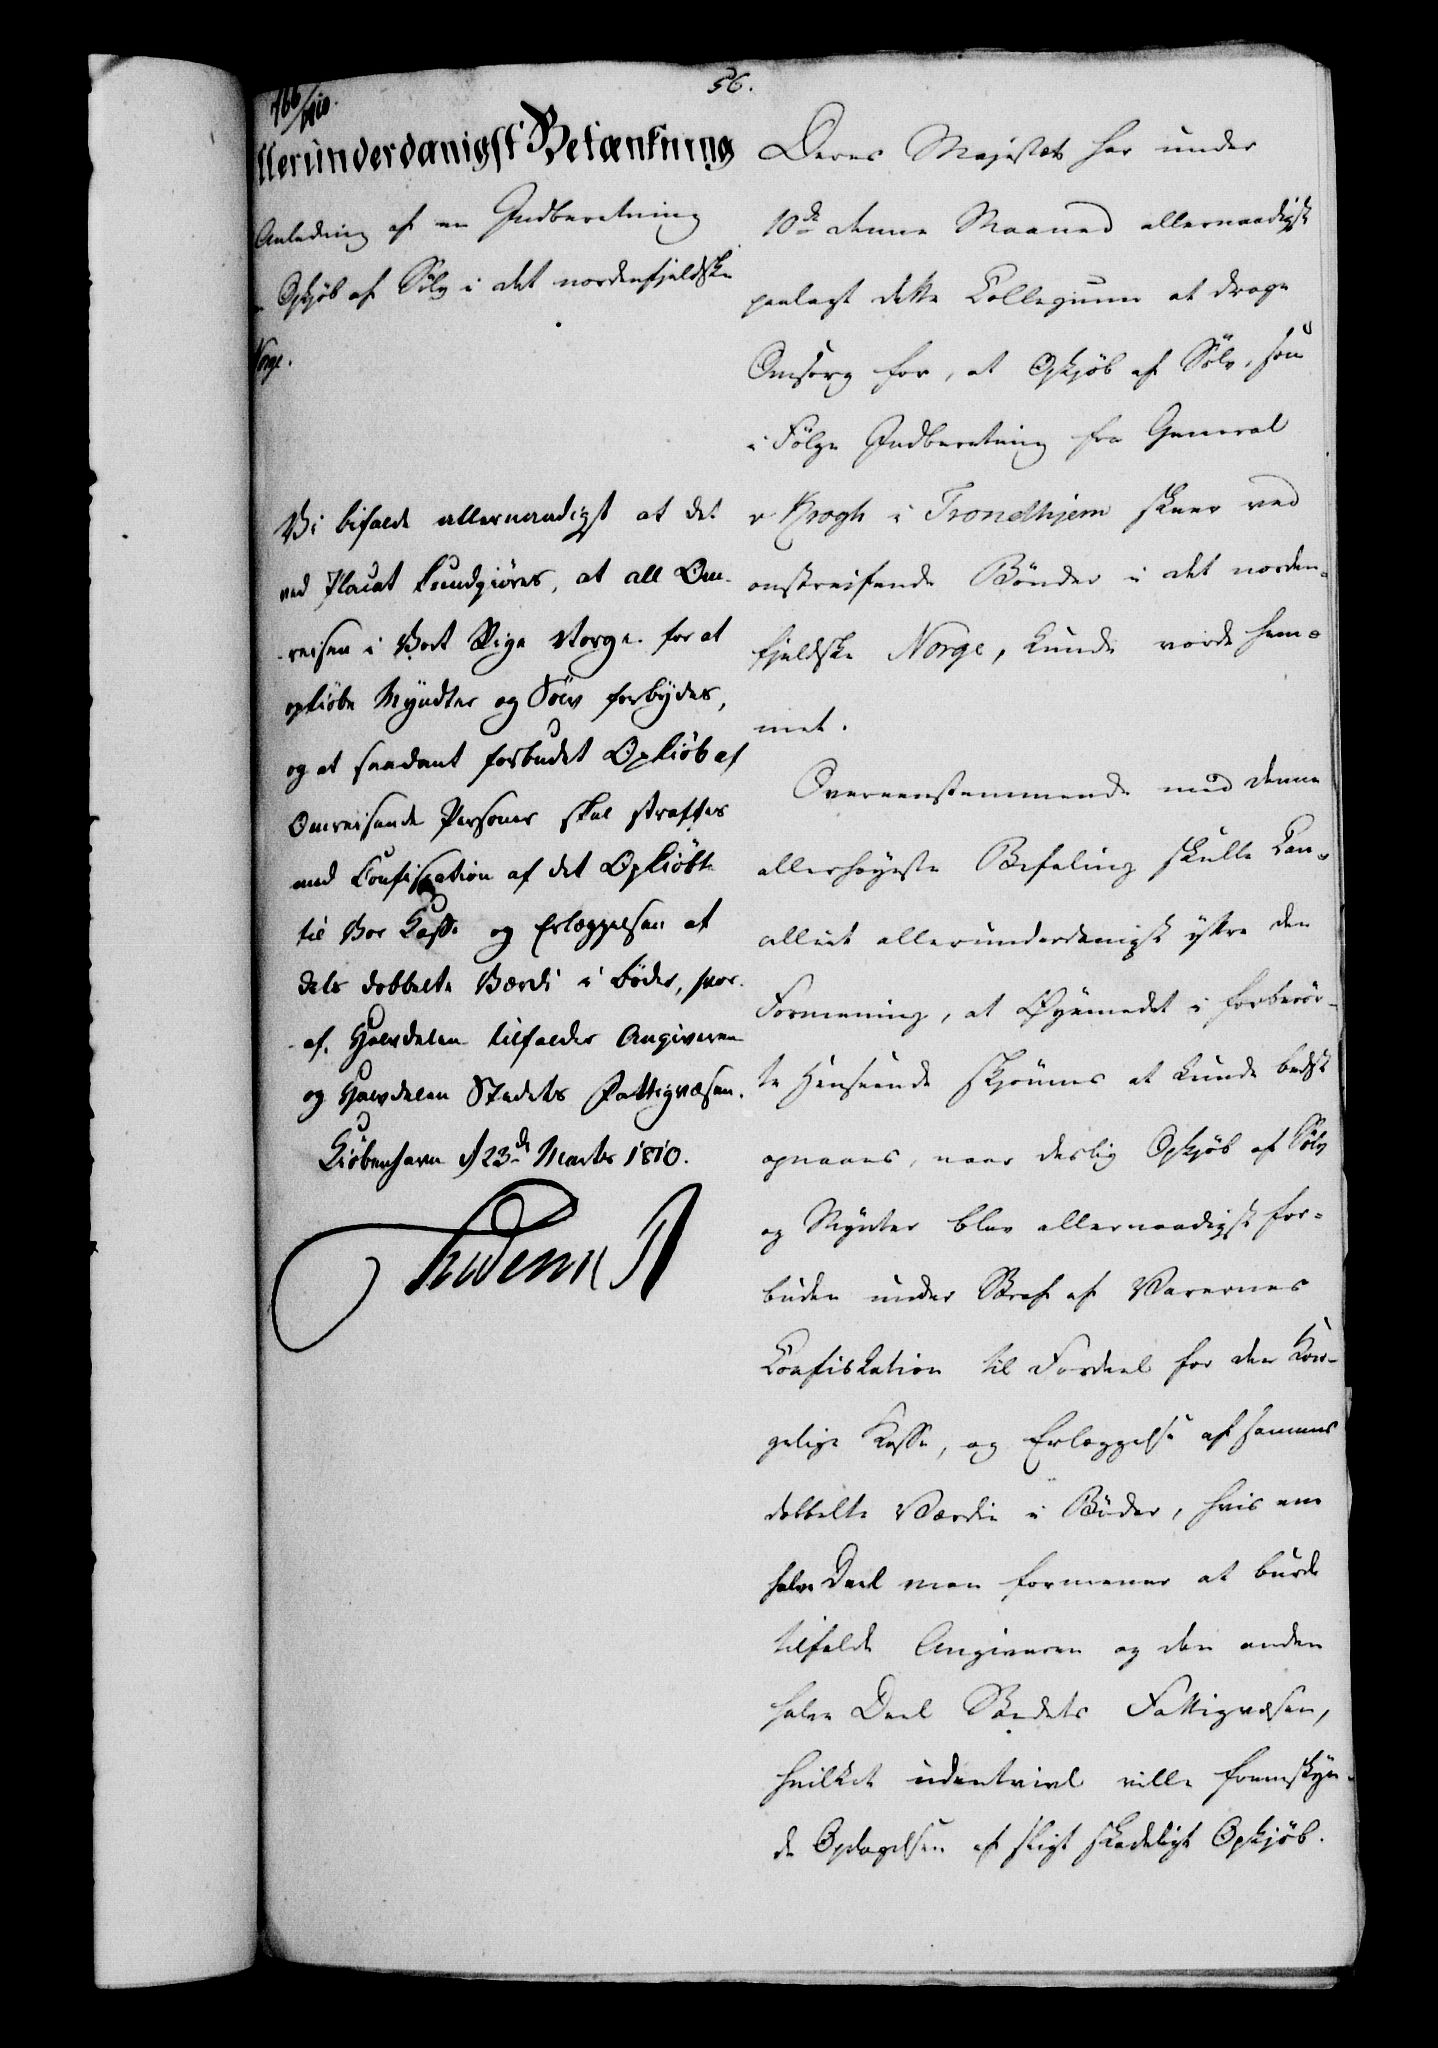 766/1810.
56.
llerunderdanigst Betænkning
Anledning af en Indberetning
Opkjöb af Sölv i det nordenfjeldske
Norge.
Vi bifalde allernaadigst at det
ved Placat kundgiøres, at all Om-
reisen i Vort Rige Norge for at
opkiöbe Myndter og Sölv forbydes,
og at saadant forbudet Opkiöb af
Omreisende Personer skal straffes
med Confiscation af det Opkiöbte
til Vor Casse og Erlæggelsen af
dets dobbelte Værdi i böder, hvor-
af Halvdelen tilfalder Angiveren
og Halvdelen Stedets Fattigvæsen.
Kiöbenhavn d 23de Marts 1810.
Frideric R
Deres Majestæt har under
10de denne Maaned allernaadigst
paalagt dette Collegium at drage
Omsorg for, at Opkjöb af Sölv, som
i Fölge Indberetning fra General
v Krogh i Trondhjem skeer ved
omstreifende Bönder i det norden-
fjeldske Norge, kunde vorde hem-
met.
Overeensstemmende med denne
allerhöyeste Befaling skulle Can-
celliet allerunderdanigst yttre den
Formening, at Øyemedet i forberör-
te Henseende skjönnes at kunde bedst
opnaaes, naar deslig Opkjöb af Sölv
og Mynter blev allernaadigst for-
buden under Straf af Varernes
Confiskation til Fordeel for den Kon-
gelige Kasse, og Erlæggelse af sammes
dobbelte Værdie i Böder, hvis ene
halve Deel man formener at burde
tilfalde Angiveren og den anden
halve Deel Stedets Fattigvæsen,
hvilket udentvivl ville fremskyn-
de Opdagelsen af sligt skadeligt Opkjöb.